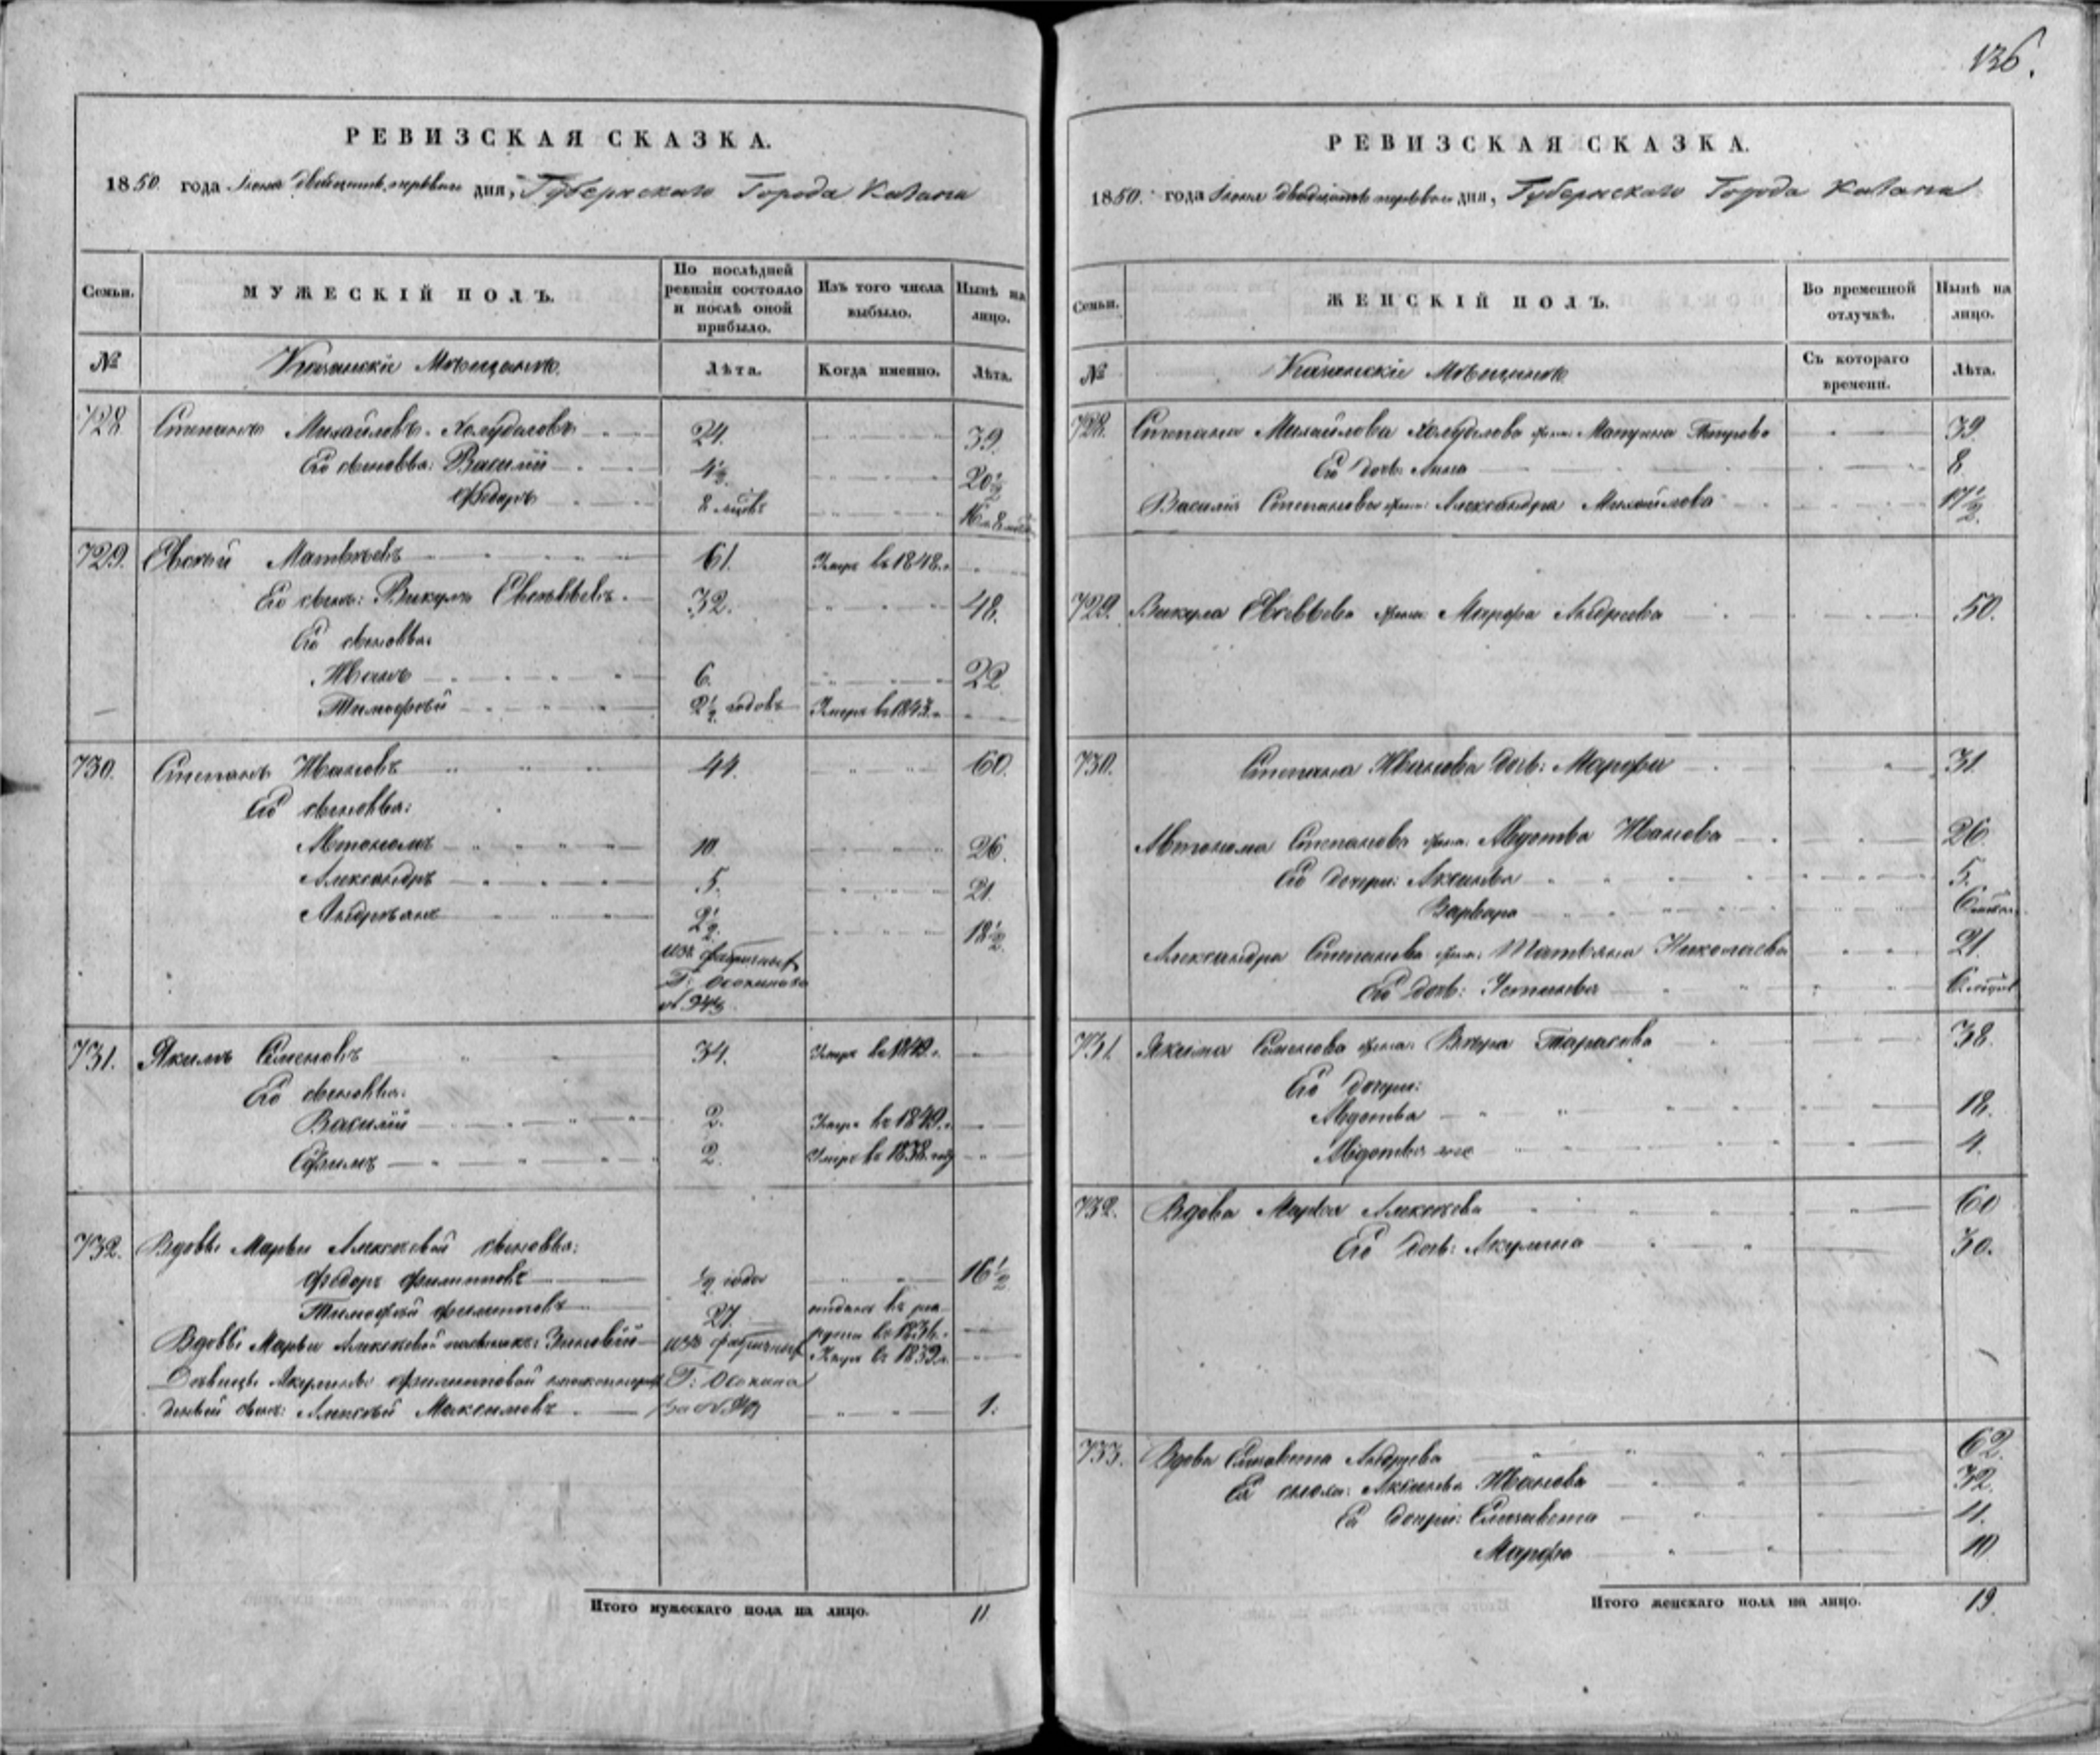 136.
РЕВИЗСКАЯ СКАЗКА.
1850. года Іюня двадцать перваго дня, Губернскаго Города Казани
Семьи. МУЖЕСКІЙ ПОЛЪ. По послѣдней ревизіи состояло и послѣ оной прибыло. Изъ того числа выбыло. Нынѣ на лицо.
№ Казанскіе Мѣщане Лѣта. Когда именно. Лѣта.
728. Степанъ Михайловъ 24. 39.
Его сыновья: Василій 4½. 20½
Ѳедоръ 8 мцовъ 16 и 8
729. Евсей Матвѣевъ 61. Умеръ въ 1848.
Его сынъ: Викулъ Евсѣевъ 32. 48.
Его сыновья:
Иванъ 6. 22
Тимофей 2½ годовъ Умеръ въ 1843.
730. Степанъ Ивановъ 44. 60.
Его сыновья:
Автономъ 10. 26.
Александръ 5. 21.
Андреянъ 2½. 18½.
изъ фабричныхъ
Г: Осокина
731. Якимъ Семеновъ 34. Умеръ въ 1849.
Его сыновья:
Василій 2. Умеръ въ 1849.
Ефимъ 2. Умеръ въ 1838. году
732. Вдовы Марьи Алексѣевой сыновья:
Ѳедоръ Филиповъ ½ года 16½
Тимофей Филиповъ 27. отданъ въ рекруты въ 1834.
Вдовы Марьи Алексѣевой Зиновій изъ фабричныхъ Умеръ въ 1839.
Дѣвицы Акулины Филиповой Г: Осокина
сынъ: Алексѣй Максимовъ 1.
Итого мужескаго пола на лицо. 11
РЕВИЗСКАЯ СКАЗКА.
1850. года Іюня двадцать перваго дня, Губернскаго Города Казани
Семьи. ЖЕНСКІЙ ПОЛЪ. Во временной отлучкѣ. Нынѣ на лицо.
№ Казанскіе Мѣщане Съ котораго времени. Лѣта.
728. Степана Михайлова жена: Петрова 39.
Его дочь: Анна 8
Василія Степанова жена: Александра Михайлова 17½.
729. Викула Евсѣева жена: Марфа Андреева 50.
730. Степана Иванова дочь: Марфа 31.
Автонома Степанова жена: Авдотья Иванова 26.
Его дочери: Аксинья 5.
Варвара 6
Александра Степанова жена: Татьяна Николаева 21.
Его дочь: Устинья 6 мцовъ
731. Якима Семенова жена: Вѣра Тарасова 38.
Его дочери:
Авдотья 18.
Авдотья 4.
732. Вдова Марья Алексѣева 60
Ея дочь: Акулина 30.
733. Вдова Елизавета Андреева 62.
Ея сноха: Аксинья Иванова 32.
Ея дочери: Елизавета 11.
Марфа 10
Итого женскаго пола на лицо. 19.